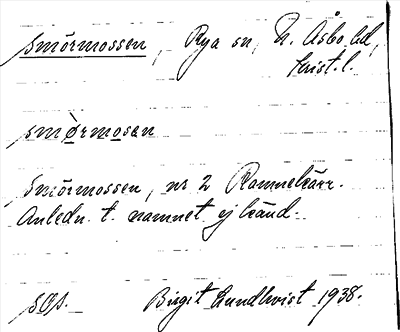 Smörmossen, Rya sn, N. Åsbo hd,
Krist. l.
smö̀rmosan
Smörmossen, nr 2 Ramnekärr.
Anledn. t. namnet ej känd.
Birgit Lundkvist 1938.